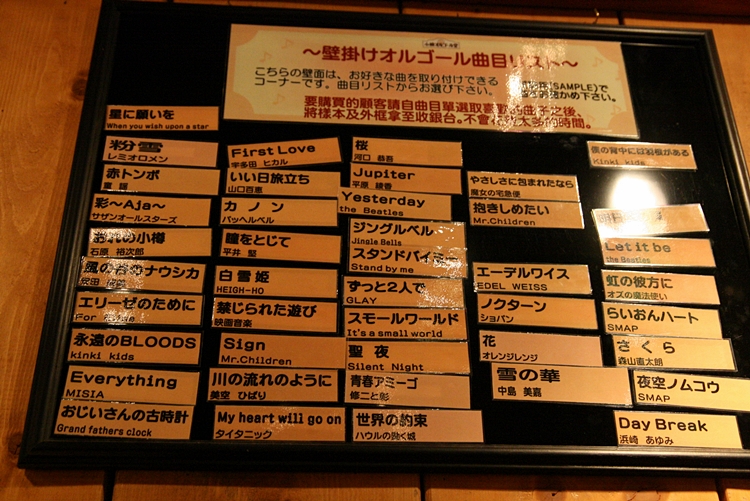 ～壁掛けオルゴール曲目リスト～
こちらの壁面は、お好きな曲を取り付けできる
コーナーです。曲目リストからお選び下さい。
(SAMPLE)で
下さい。
要購買的顧客請自曲目單選取喜歡的曲子之後、
將樣本及外框拿至收銀台。不會花太多的時間。
星に願いを
When you wish upon a star
粉雪
レミオロメン
赤トンボ
童謡
彩～Aja～
サザンオールスターズ
おれの小樽
石原 裕次郎
風の谷のナウシカ
エリーゼのために
For
永遠のBLOODS
kinki kids
Everything
MISIA
おじいさんの古時計
Grand fathers clock
First Love
宇多田 ヒカル
いい日旅立ち
山口百恵
カノン
パッヘルベル
瞳をとじて
平井 堅
白雪姫
HEIGH-HO
禁じられた遊び
映画音楽
Sign
Mr.Children
川の流れのように
美空 ひばり
My heart will go on
タイタニック
桜
河口 恭吾
Jupiter
平原 綾香
Yesterday
the Beatles
ジングルベル
Jingle Bells
スタンドバイミー
Stand by me
ずっと2人で
GLAY
スモールワールド
It's a small world
聖夜
Silent Night
青春アミーゴ
修二と彰
世界の約束
ハウルの動く城
やさしさに包まれたなら
魔女の宅急便
抱きしめたい
Mr.Children
エーデルワイス
EDEL WEISS
ノクターン
ショパン
花
オレンジレンジ
雪の華
中島 美嘉
僕の背中には羽根がある
Kinki kids
Let it be
the Beatles
虹の彼方に
オズの魔法使い
らいおんハート
SMAP
さくら
森山直太朗
夜空ノムコウ
SMAP
Day Break
浜崎 あゆみ